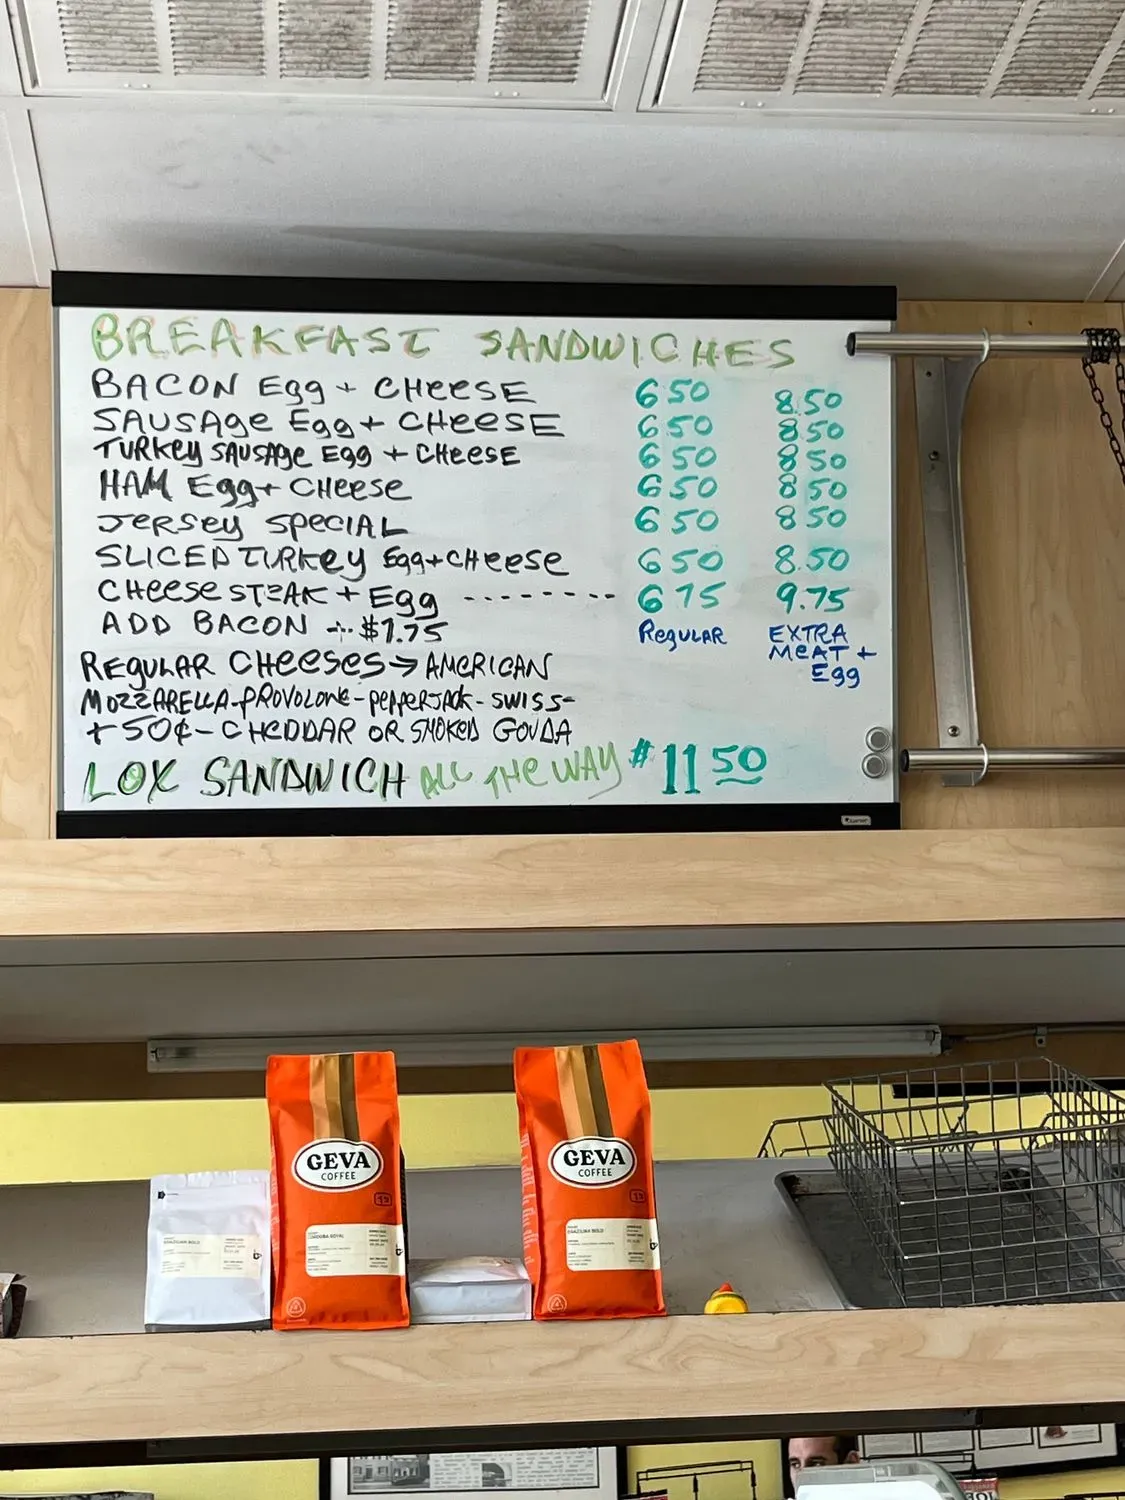 BREAKFAST SANDWICHES
BACON Egg + CHEESE 6 50 8.50
SAUSAge Egg + CHEESE 6 50 8 50
TURKey SAUSAge Egg + CHEESE 6 50 8 50
HAM Egg + CHeese 6 50 8 50
JERSEY SPECIAL 6 50 8 50
SLICED TURKEY Egg + CHeese 6 50 8.50
CHeese STEAK + Egg -------- 6 75 9.75
ADD BACON -:- $1.75 Regular EXTRA
MEAT +
Egg
REGULAR CHEESES → AMERICAN
MOZZARELLA - PROVOLONE - PEPPERJACK - SWISS -
+ 50¢ - CHEDDAR OR SMOKED GOUDA
LOX SANDWICH ALL THE WAY $11 50
GEVA
COFFEE
GEVA
COFFEE
BRAZILIAN BOLD
CORDOBA GOYAL
BRAZILIAN BOLD